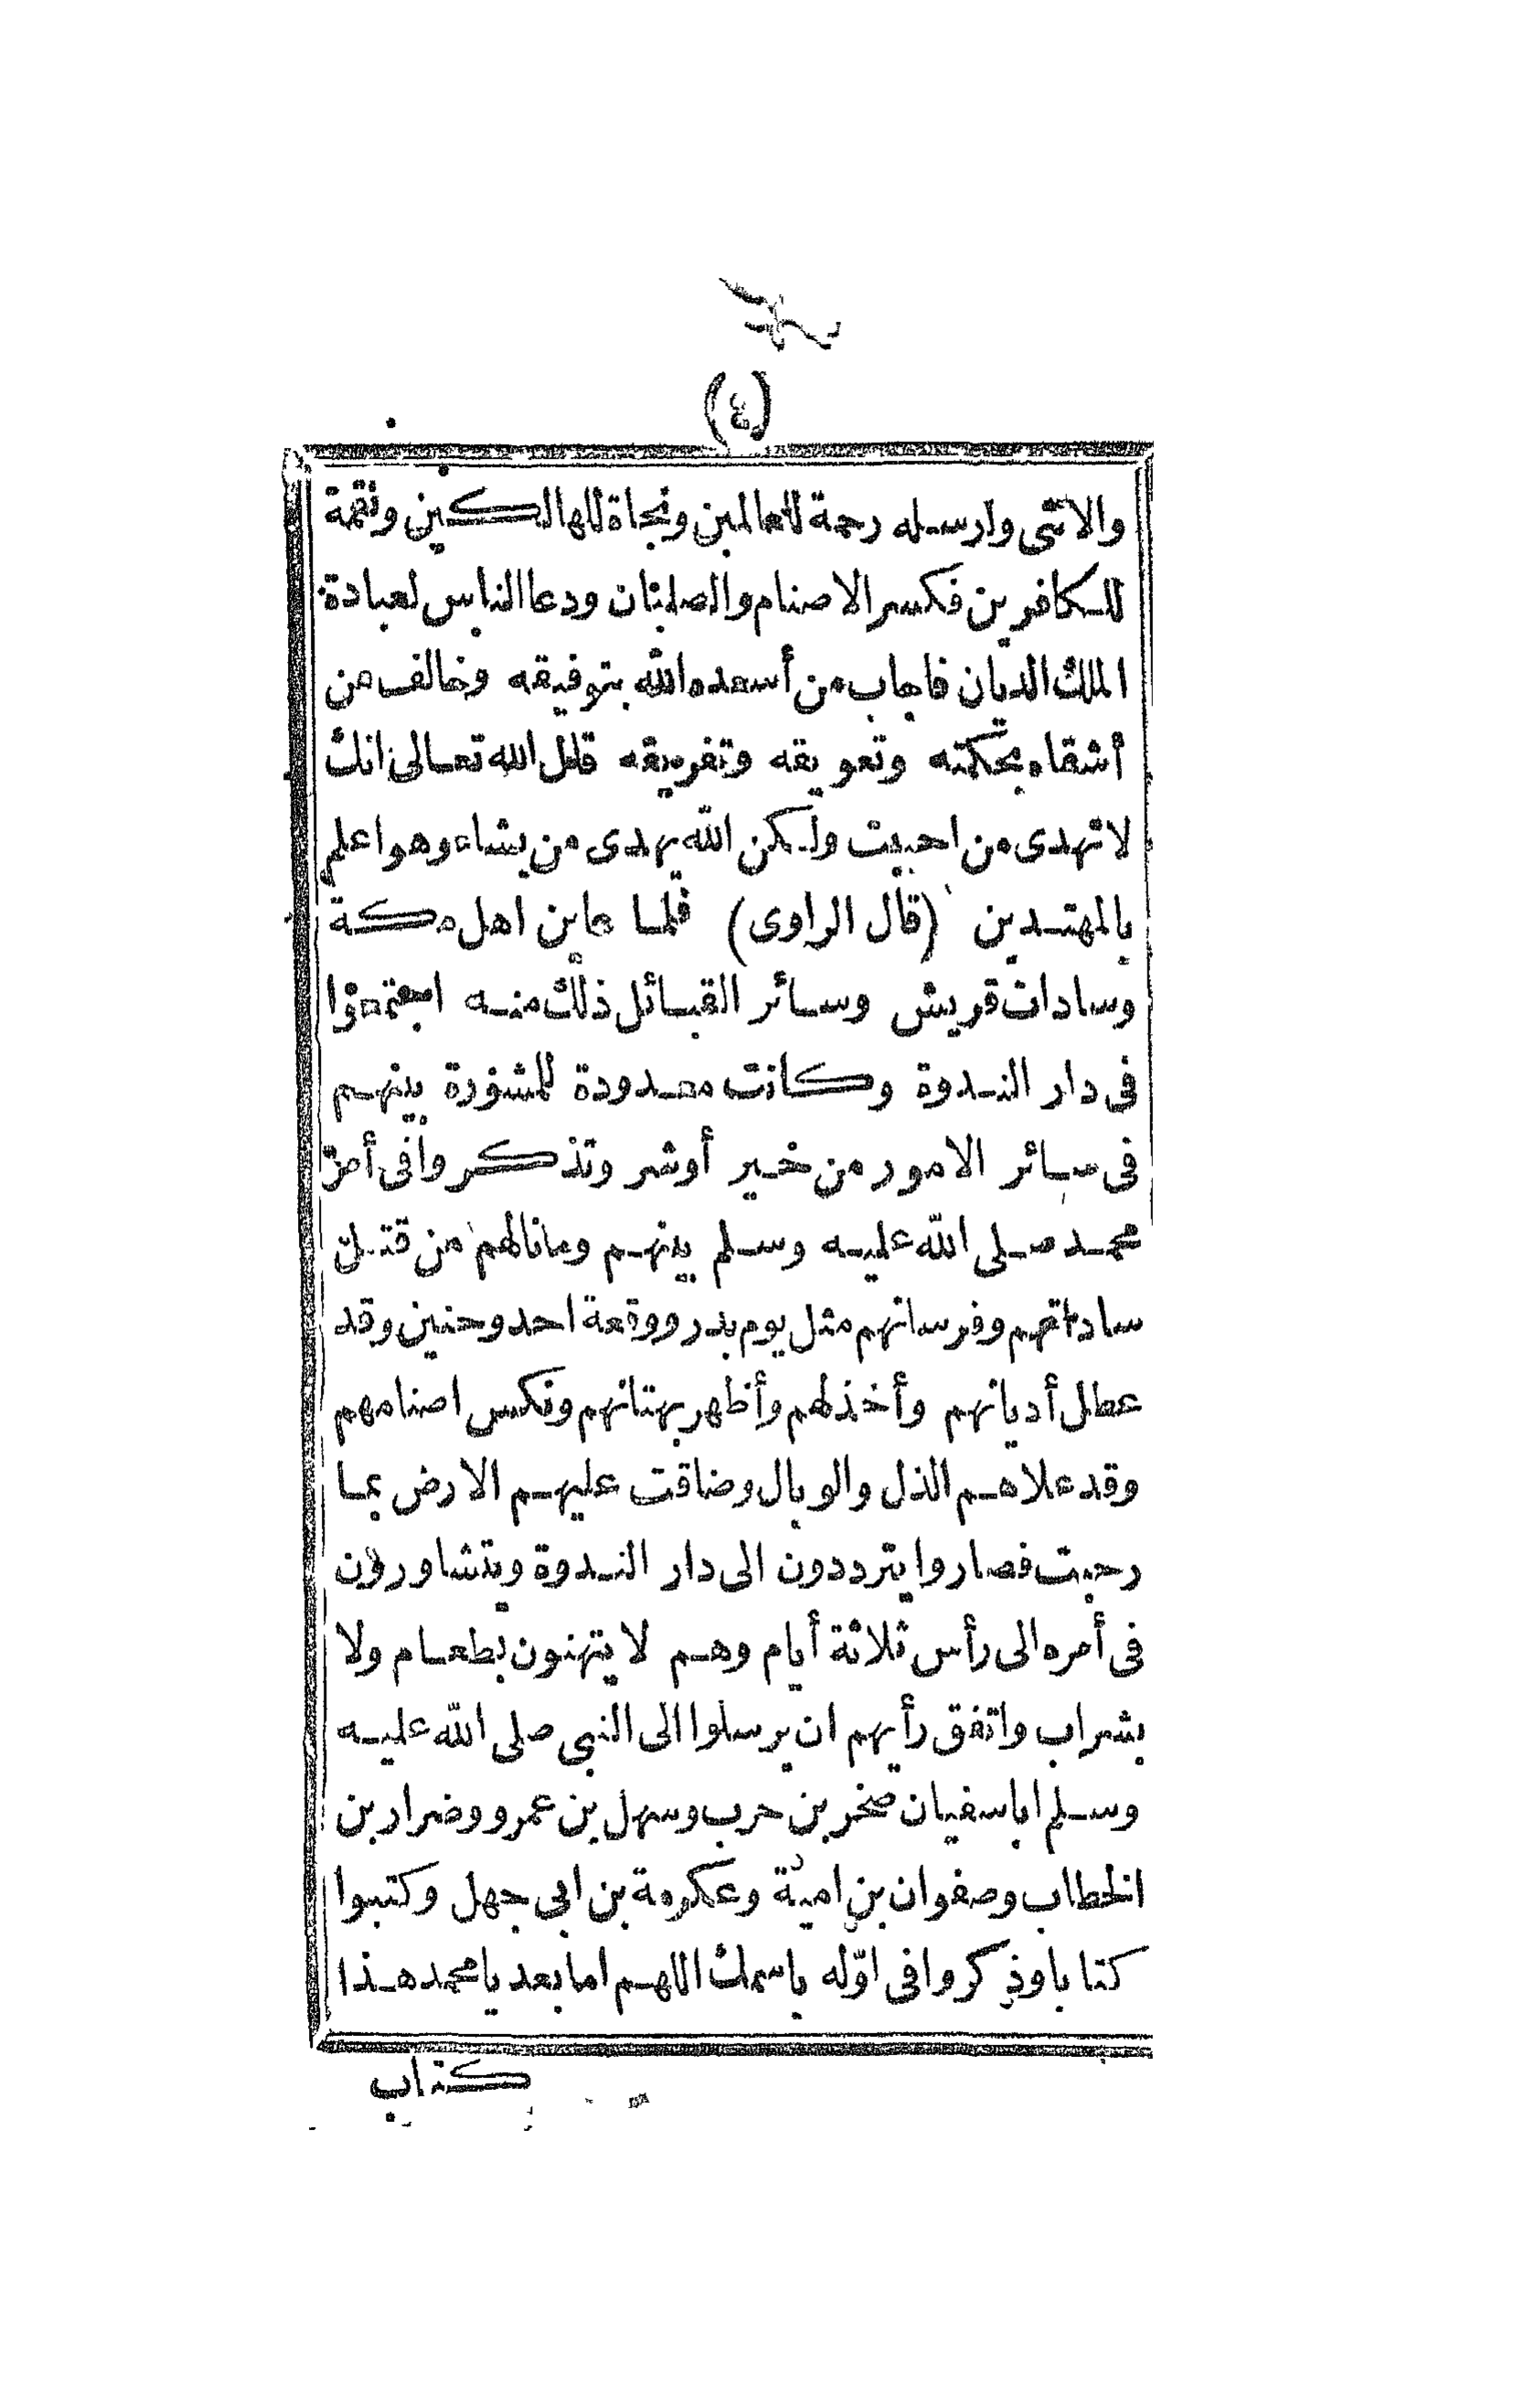 (٤)
والانثى وارسله رحمة للعالمين ونجاة للهالكين ونقمة
للكافرين فكسر الاصنام والصلبان ودعا الناس لعبادة
الملك الديان فاجاب من أسعده الله بتوفيقه وخالف من
أشقاه بحكمته وتعويقه وتفريقه قال الله تعالى انك
لا تهدى من احببت ولكن الله يهدى من يشاء وهو اعلم
بالمهتدين (قال الراوى) فلما عاين اهل مكة
وسادات قريش وسائر القبائل ذلك منه اجتمعوا
فى دار الندوة وكانت معدودة للمشورة بينهم
فى سائر الامور من خير أوشر وتذكروا فى أمر
محمد صلى الله عليه وسلم بينهم ومانالهم من قتل
ساداتهم وفرسانهم مثل يوم بدر ووقعة احد وحنين وقد
عطل أديانهم وأخذلهم وأظهر بهتانهم ونكس اصنامهم
وقد علاهم الذل والوبال وضاقت عليهم الارض بما
رحبت فصاروا يترددون الى دار الندوة ويتشاورون
فى أمره الى رأس ثلاثة أيام وهم لا يتهنون بطعام ولا
بشراب واتفق رأيهم ان يرسلوا الى النبى صلى الله عليه
وسلم اباسفيان صخر بن حرب وسهل بن عمرو وضرار بن
الخطاب وصفوان بن امية وعكرمة بن ابى جهل وكتبوا
كتابا وذكروا فى اوّله باسمك اللهم اما بعد يا محمد هذا
كتاب